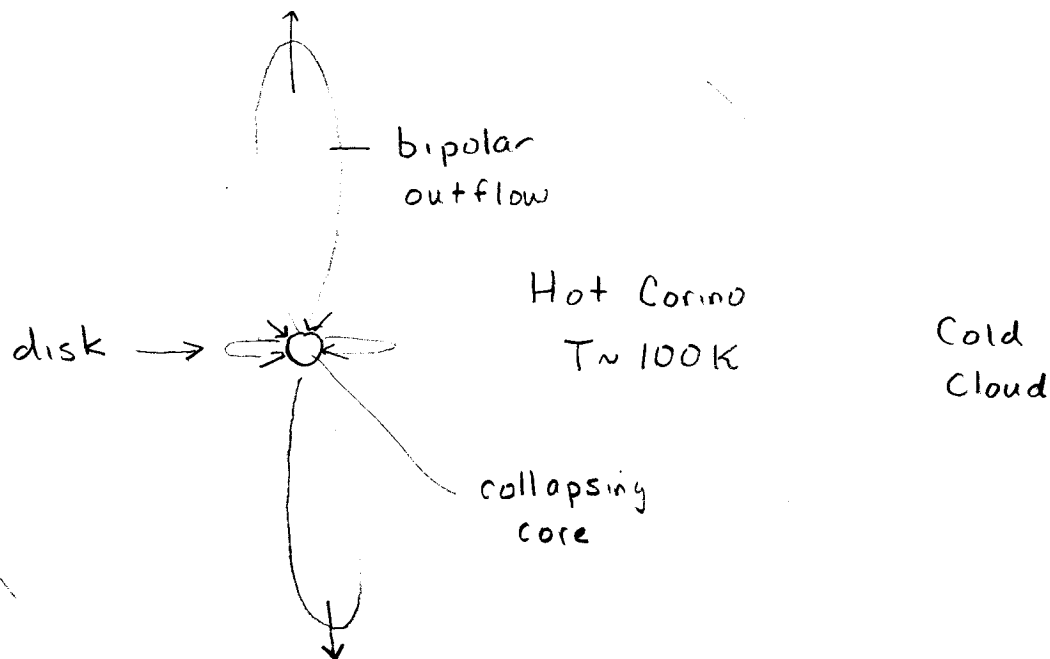 bipolar
outflow
Hot Corino
T ~ 100K
disk
Cold
Cloud
collapsing
core